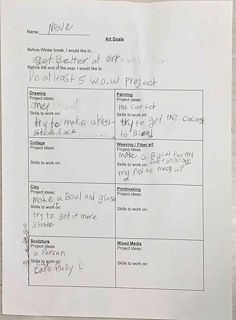 Name: Neve
Art Goals
Before Winter break, I would like to...
get Better at art
Before the end of the year, I would like to...
Do at least 5 W.O.W Project
Drawing
Project ideas:
me
Skills to work on:
try to make a
Painting
Project ideas:
the sunset
Skills to work on:
try to get the colors
to Blend
Collage
Project ideas:
Skills to work on:
Weaving / Fiber art
Project ideas:
make a
Skills to work on:
try not to mess up
Clay
Project ideas:
make a Boul and glase
Skills to work on:
try to get it more
Printmaking
Project ideas:
Skills to work on:
Sculpture
Project ideas:
a Person
Skills to work on:
Mixed Media
Project ideas:
Skills to work on: